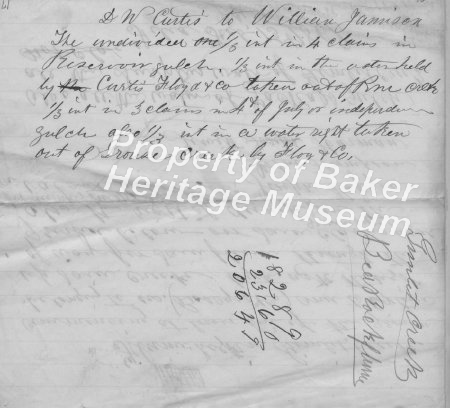 D W Curtis to William Jamison
The undivided one 1/3 int in 4 claims in
Reservoir gulch. 1/3 int in the water held
by Curtis Floyd & co taken out of Pine creek
1/3 int in 3 claims in 4th of July or independence
gulch also 1/3 int in a water right taken
out of creek by Floyd & Co.
Property of Baker
Heritage Museum
18289
2360
20649
Gimlet Creek
Bedrock flume